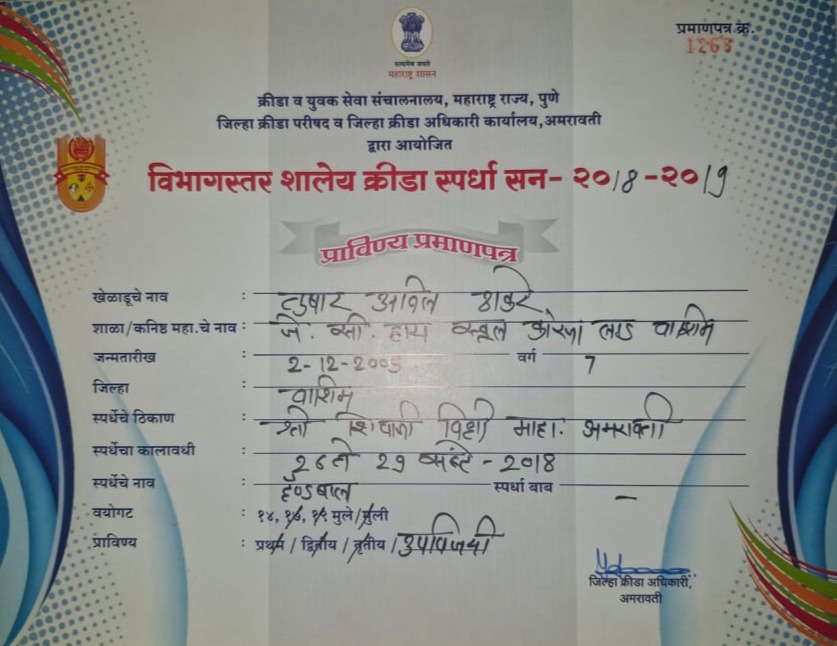 प्रमाणपत्र क्र.
1263
सत्यमेव जयते
महाराष्ट्र शासन
क्रीडा व युवक सेवा संचालनालय, महाराष्ट्र राज्य, पुणे
जिल्हा क्रीडा परिषद व जिल्हा क्रीडा अधिकारी कार्यालय,अमरावती
द्वारा आयोजित
विभागस्तर शालेय क्रीडा स्पर्धा सन- २०18 -२०19
प्राविण्य प्रमाणपत्र
खेळाडूचे नाव : तुषार अनिल ठाकरे
शाळा/कनिष्ठ महा.चे नाव : जे. सी. हाय स्कूल कारंजा लाड वाशिम
जन्मतारीख : 2-12-2005 वर्ग 7
जिल्हा : वाशिम
स्पर्धेचे ठिकाण : श्री शिवाजी माहा. अमरावती
स्पर्धेचा कालावधी : 28 ते 29 सप्टें - 2018
स्पर्धेचे नाव : हँडबाल स्पर्धा बाब –
वयोगट : १४, १७, १९ मुले/मुली
प्राविण्य : प्रथम / द्वितीय / तृतीय / उपविजयी
जिल्हा क्रीडा अधिकारी,
अमरावती